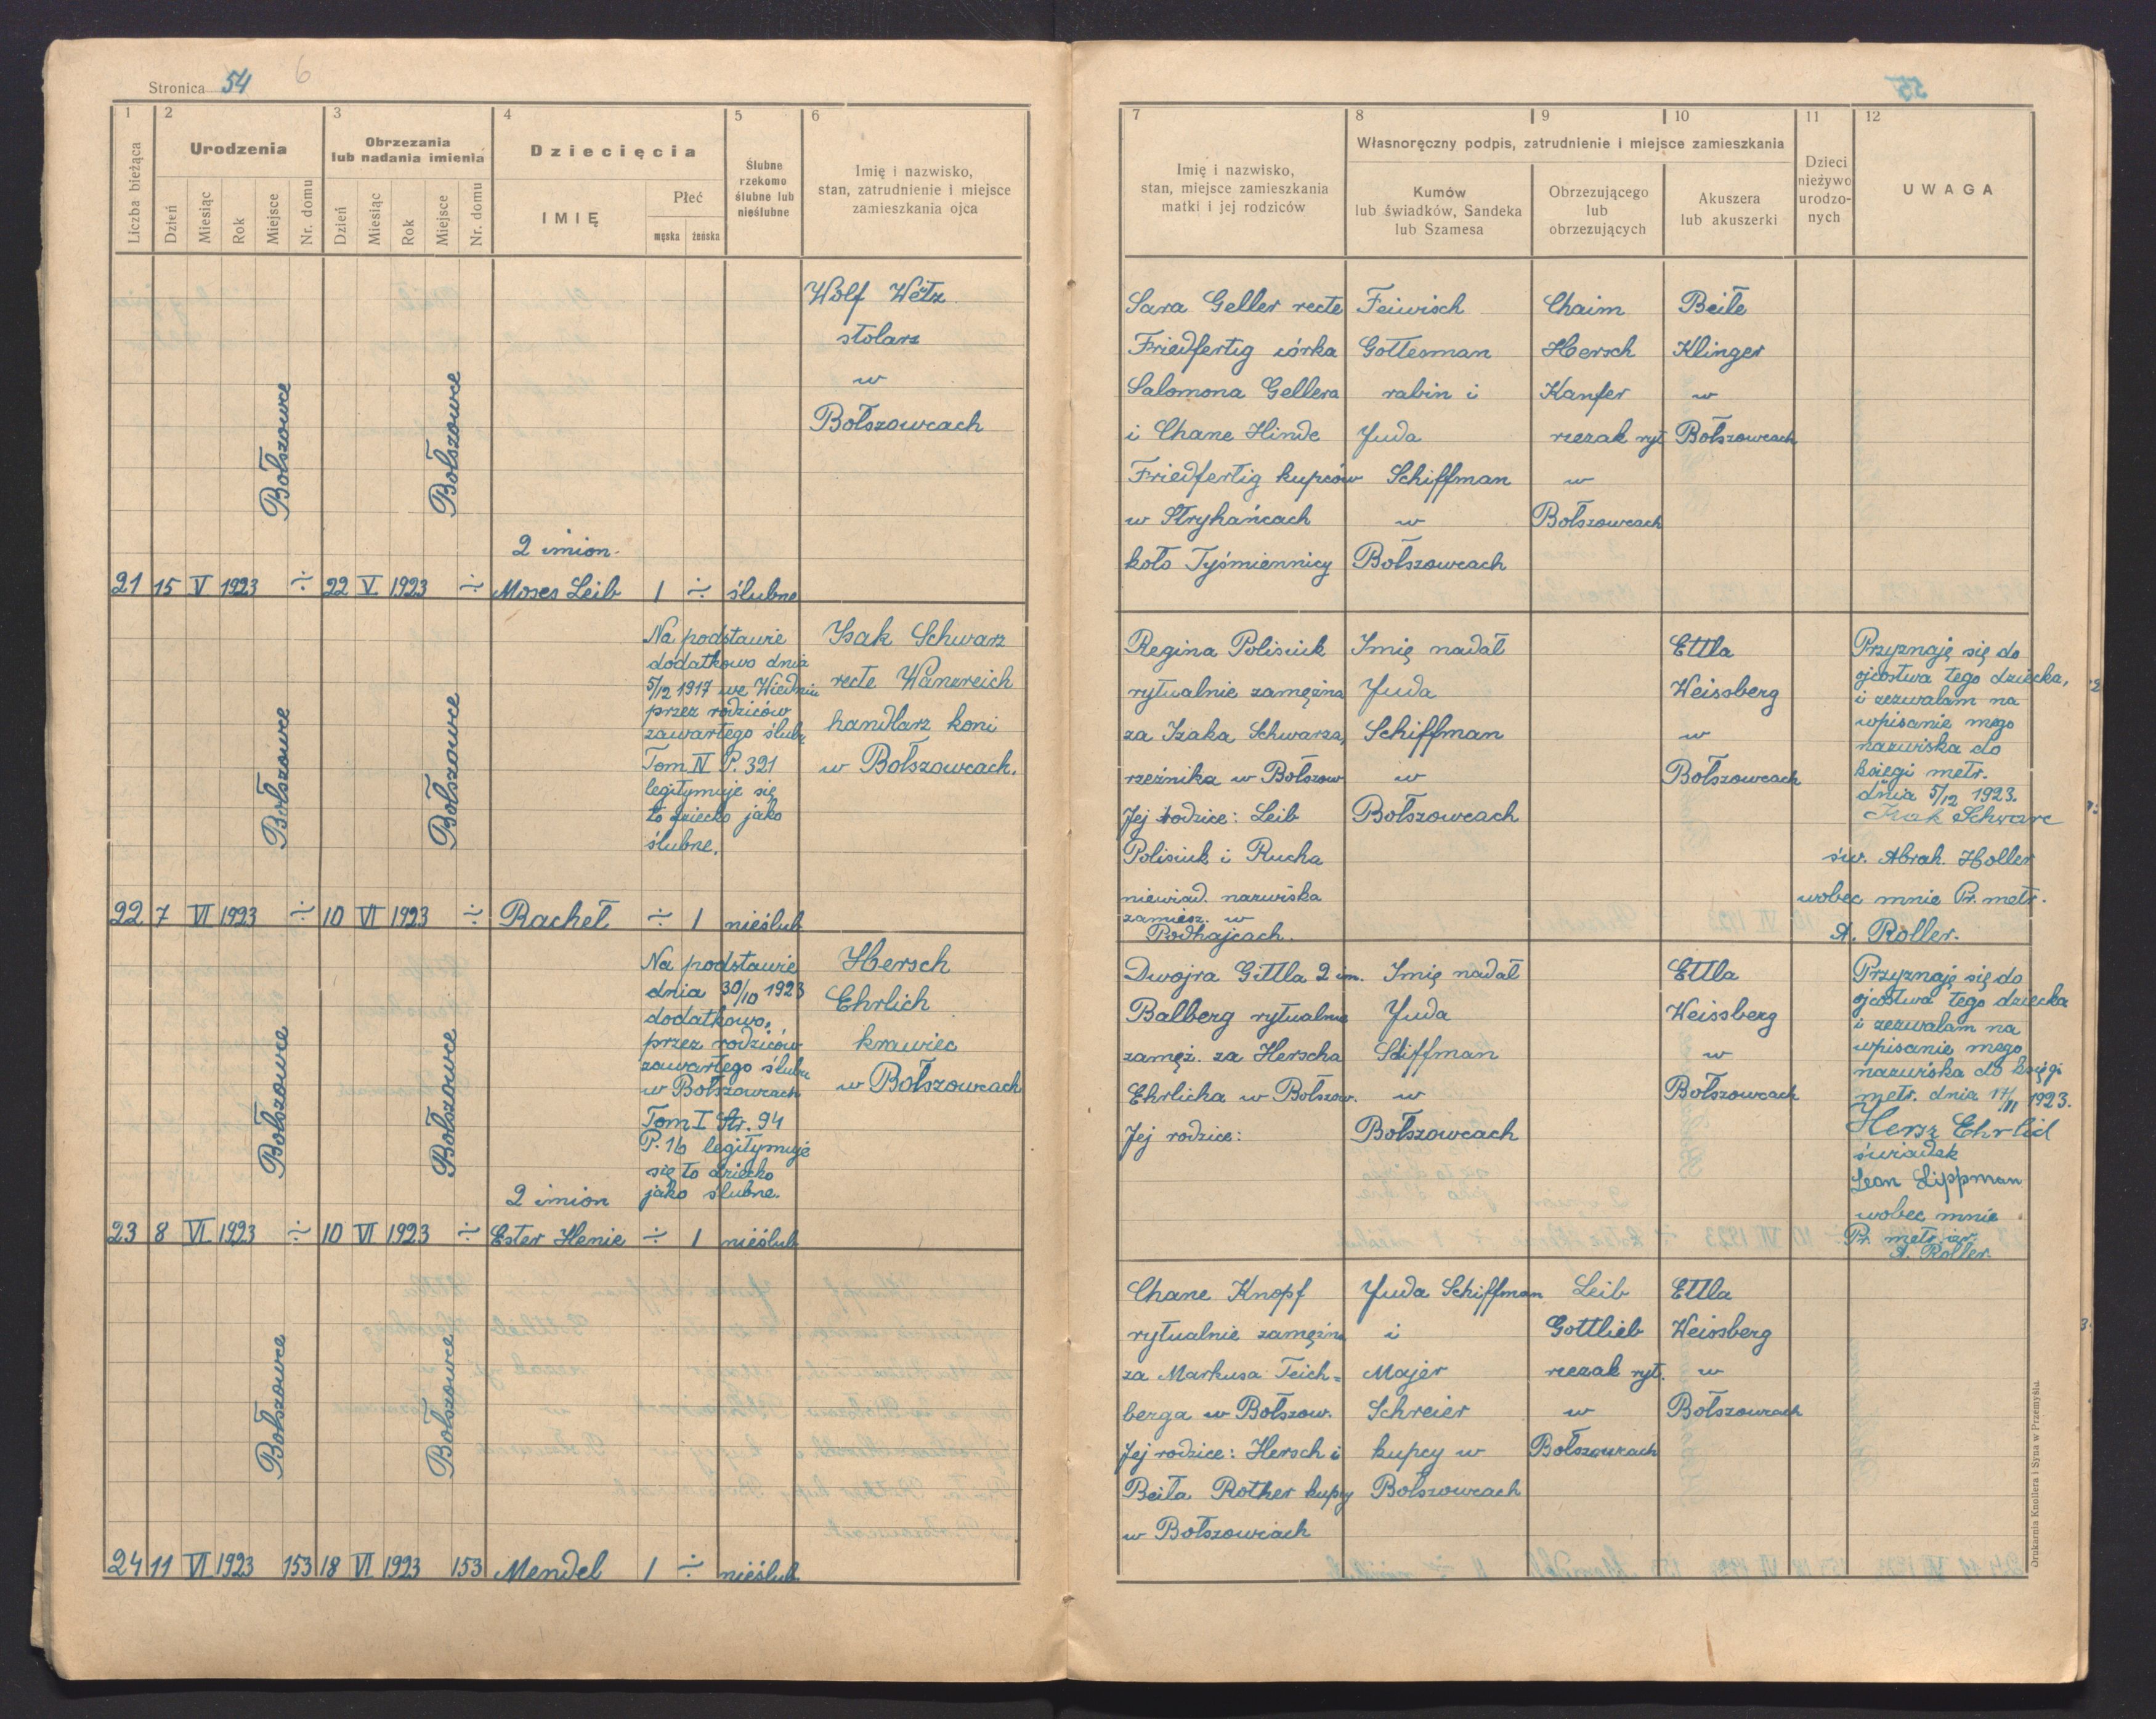 Stronica 54 6
1
2
3
4
5
6
Liczba bieżąca
Urodzenia
Obrzezania
lub nadania imienia
Dziecięcia
Ślubne
rzekomo
ślubne lub
nieślubne
Imię i nazwisko,
stan, zatrudnienie i miejsce
zamieszkania ojca
Dzień
Miesiąc
Rok
Miejsce
Nr. domu
Dzień
Miesiąc
Rok
Miejsce
Nr. domu
IMIĘ
Płeć
męska
żeńska
Wolf Wetz
stolarz
w
Bołszowcach
Bołszowce
Bołszowce
2 imion.
21 15 V 1923 ÷ 22 V 1923 ÷ Moses Leib 1 ÷ ślubne
Na podstawie
dodatkowo dnia
5/12 1917 we Wiedniu
przez rodziców
zawartego ślubu
Tom IV P. 321
legitymuje się
to dziecko jako
ślubne.
Isak Schwarz
recte Wanzreich
handlarz koni
w Bołszowcach.
Bołszowce
Bołszowce
22 7 VI 1923 ÷ 10 VI 1923 ÷ Rachel ÷ 1 nieślub
Na podstawie
dnia 30/10 1923
dodatkowo,
przez rodziców
zawartego ślubu
w Bołszowcach
Tom I Str. 94
P. 16 legitymuje
się to dziecko
jako ślubne.
Hersch
Ehrlich
krawiec
w Bołszowcach
Bołszowce
Bołszowce
2 imion
23 8 VI 1923 ÷ 10 VI 1923 ÷ Ester Henie ÷ 1 nieślub
Bołszowce
Bołszowce
24 11 VI 1923 153 18 VI 1923 153 Mendel 1 ÷ nieślub
7
8
9
10
11
12
Imię i nazwisko,
stan, miejsce zamieszkania
matki i jej rodziców
Własnoręczny podpis, zatrudnienie i miejsce zamieszkania
Kumów
lub świadków, Sandeka
lub Szamesa
Obrzezującego
lub
obrzezujących
Akuszera
lub akuszerki
Dzieci
nieżywo
urodzo-
nych
UWAGA
Sara Geller recte
Friedfertig córka
Salomona Gellera
i Chane Hinde
Friedfertig kupców
w Stryhańcach
koło Tyśmiennicy
Feiwisch
Gottesman
rabin i
Juda
Schiffman
w
Bołszowcach
Chaim
Hersch
Kanfer
rzezak ryt
w
Bołszowcach
Beile
Klinger
w
Bołszowcach
Regina Polisiuk
rytualnie zamężna
za Izaka Schwarza,
rzeźnika w Bołszow
Jej rodzice: Leib
Polisiuk i Rucha
niewiad. nazwiska
zamiesz. w
Podhajcach.
Imię nadał
Juda
Schiffman
w
Bołszowcach
Ettla
Weissberg
w
Bołszowcach
Przyznaję się do
ojcostwa tego dziecka,
i zezwalam na
wpisanie mego
nazwiska do
księgi metr.
dnia 5/12 1923.
Izak Schwarc
św. Abrah. Holler
wobec mnie Pr. metr.
A. Roller.
Dwojra Gittla 2 im.
Balberg rytualnie
zamęż. za Herscha
Ehrlicha w Bołszow.
Jej rodzice:
Imię nadał
Juda
Schiffman
w
Bołszowcach
Ettla
Weissberg
w
Bołszowcach
Przyznaję się do
ojcostwa tego dziecka
i zezwalam na
wpisanie mego
nazwiska do księgi
metr. dnia 17/11 1923.
Hersz Ehrlich
świadek
Leon Lippman
wobec mnie
Pr. metr. izr.
A. Roller.
Chane Knopf
rytualnie zamężna
za Markusa Teich=
berga w Bołszow.
Jej rodzice: Hersch i
Beila Rother kupcy
w Bołszowcach
Juda Schiffman
i
Majer
Schreier
kupcy w
Bołszowcach
Leib
Gottlieb
rzezak ryt.
w
Bołszowcach
Ettla
Weissberg
w
Bołszowcach
Drukarnia Knollera i Syna w Przemyślu